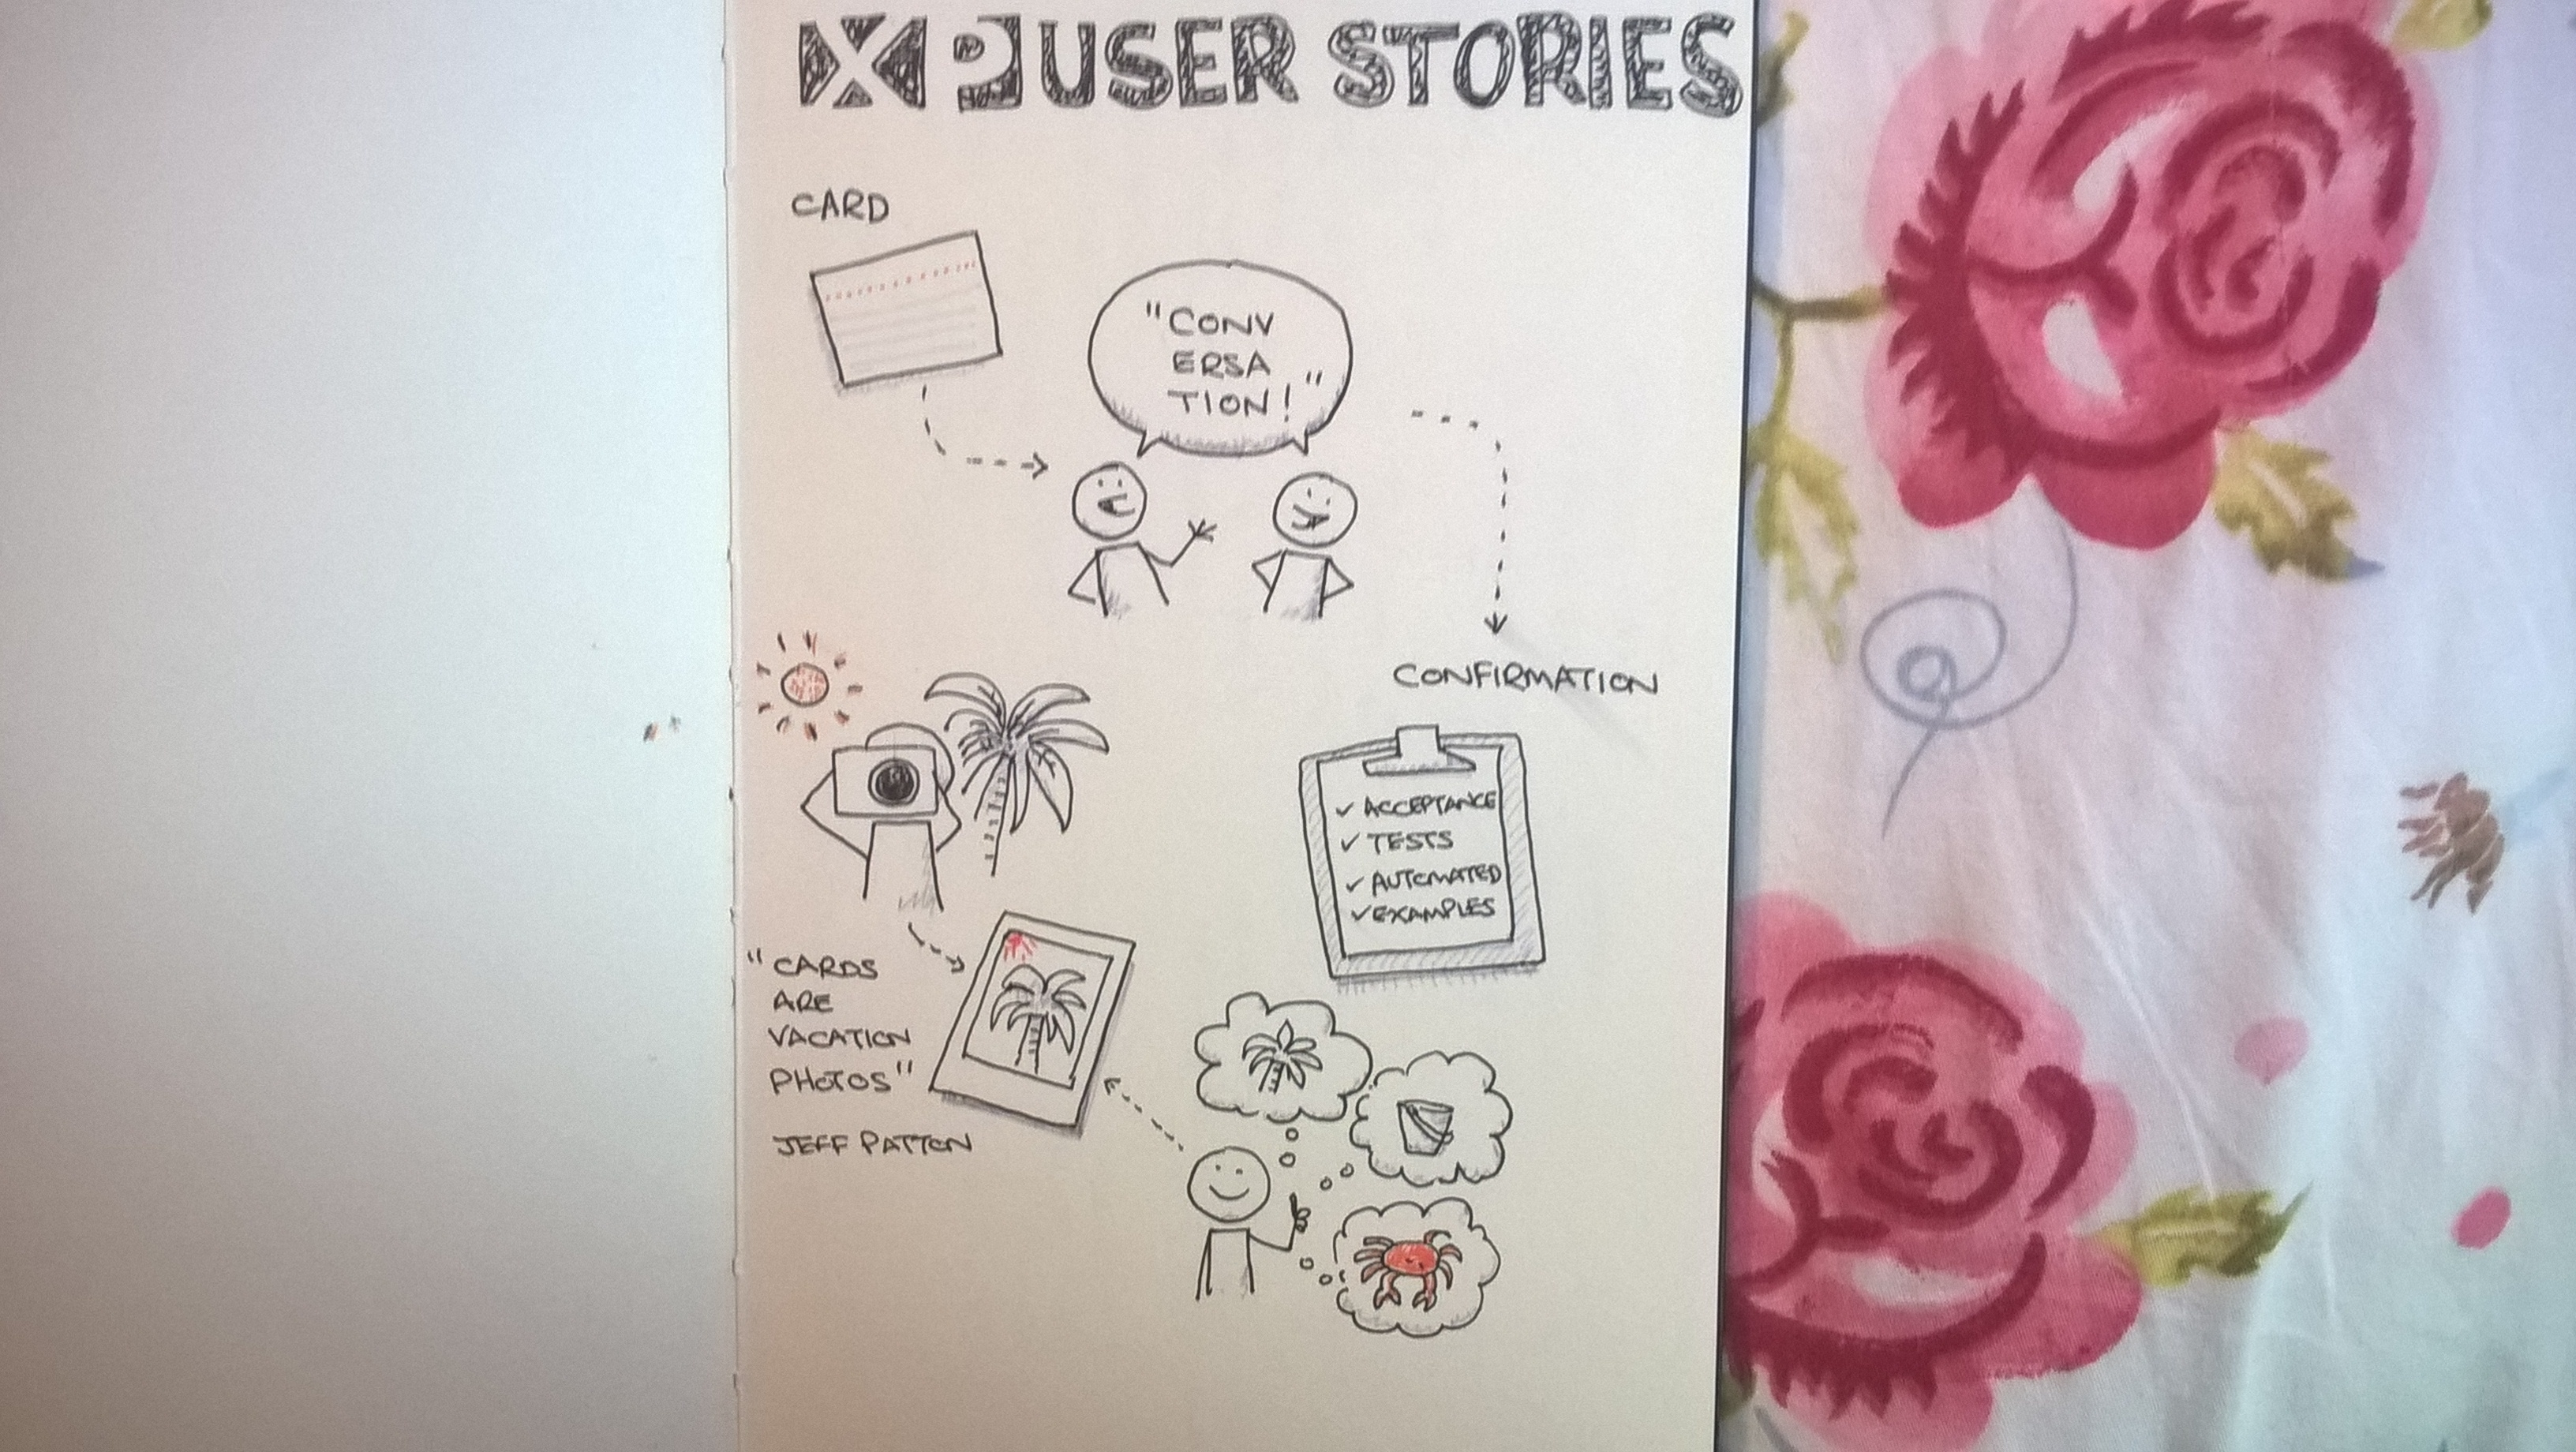 XP USER STORIES
CARD
"CONV
ERSA
TION!"
CONFIRMATION
✓ ACCEPTANCE
✓ TESTS
✓ AUTOMATED
✓ EXAMPLES
"CARDS
ARE
VACATION
PHOTOS"
JEFF PATTON